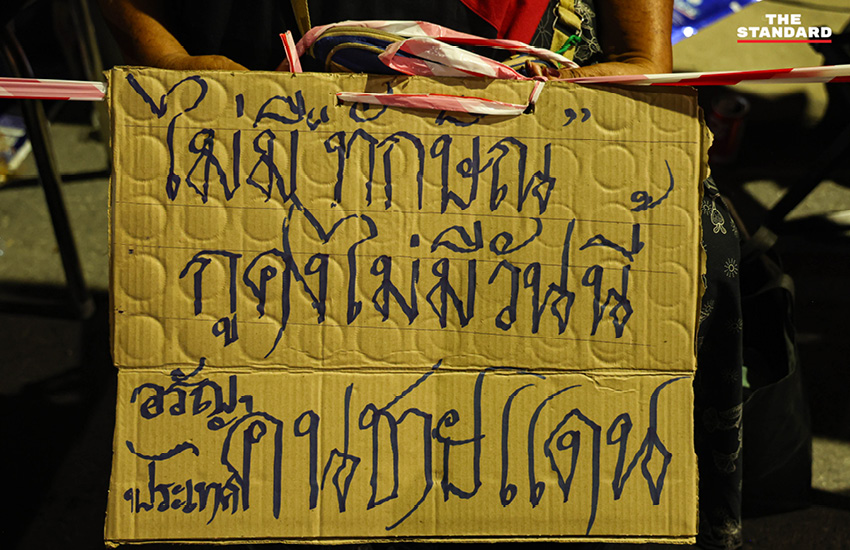 THE
STANDARD
ไม่มี“ทักษิณ”
กูคงไม่มีวันนี้
อรัญฯ
ประเทศ คนชายแดน